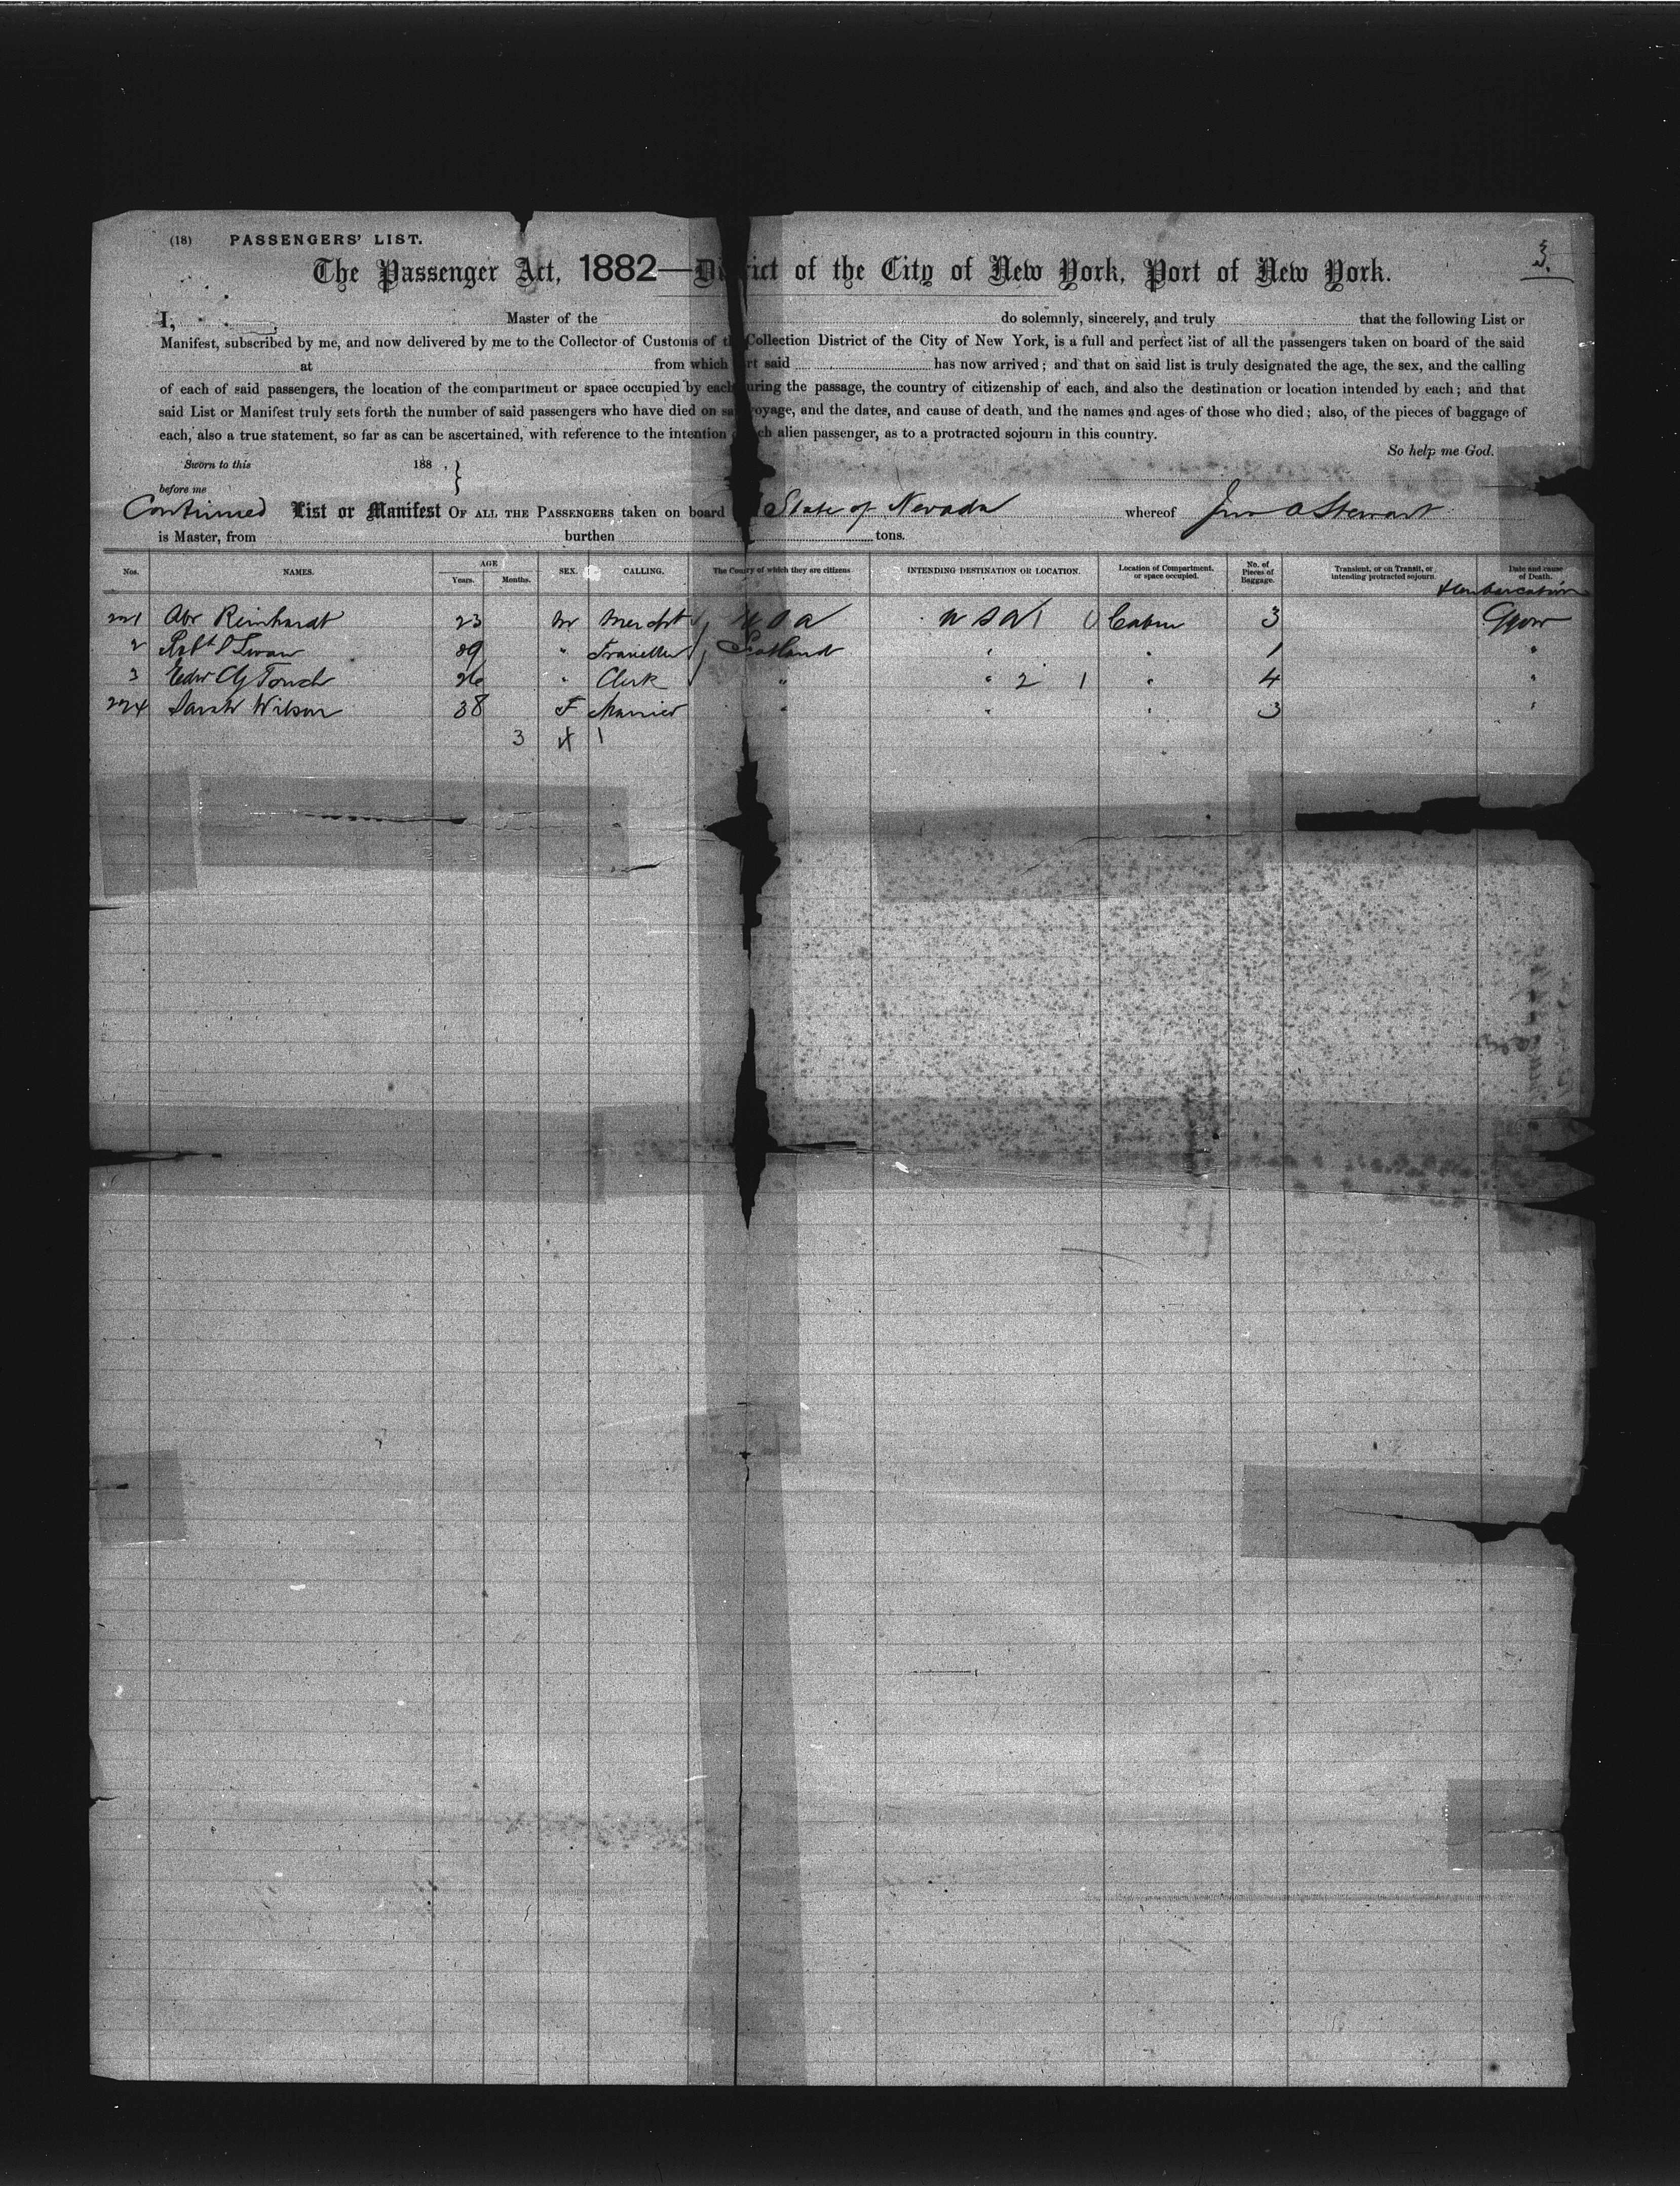 (18) PASSENGERS' LIST.
3.
The Passenger Act, 1882—District of the City of New York, Port of New York.
I, Master of the do solemnly, sincerely, and truly that the following List or
Manifest, subscribed by me, and now delivered by me to the Collector of Customs of the Collection District of the City of New York, is a full and perfect list of all the passengers taken on board of the said
at from which port said has now arrived; and that on said list is truly designated the age, the sex, and the calling
of each of said passengers, the location of the compartment or space occupied by each during the passage, the country of citizenship of each, and also the destination or location intended by each; and that
said List or Manifest truly sets forth the number of said passengers who have died on said voyage, and the dates, and cause of death, and the names and ages of those who died; also, of the pieces of baggage of
each, also a true statement, so far as can be ascertained, with reference to the intention of each alien passenger, as to a protracted sojourn in this country.
So help me God.
Sworn to this 188 , }
before me
Continued List or Manifest OF ALL THE PASSENGERS taken on board State of Nevada whereof Jno A Stewart
is Master, from burthen tons.
Nos. NAMES. AGE Years. Months. SEX. CALLING. The Country of which they are citizens INTENDING DESTINATION OR LOCATION. Location of Compartment, or space occupied. No. of Pieces of Baggage. Transient, or on Transit, or intending protracted sojourn. Date and cause of Death.
Embarcation
221 Abr Reinhardt 23 M Mercht U S A U S A 1 0 Cabin 3 Glow
2 Robt Swan 39 " Traveller Scotland " " 1 "
3 Edwr Touch 26 " Clerk " " 2 1 " 4 "
224 Sarah Wilson 38 F Married " " " 3 "
3 4 1